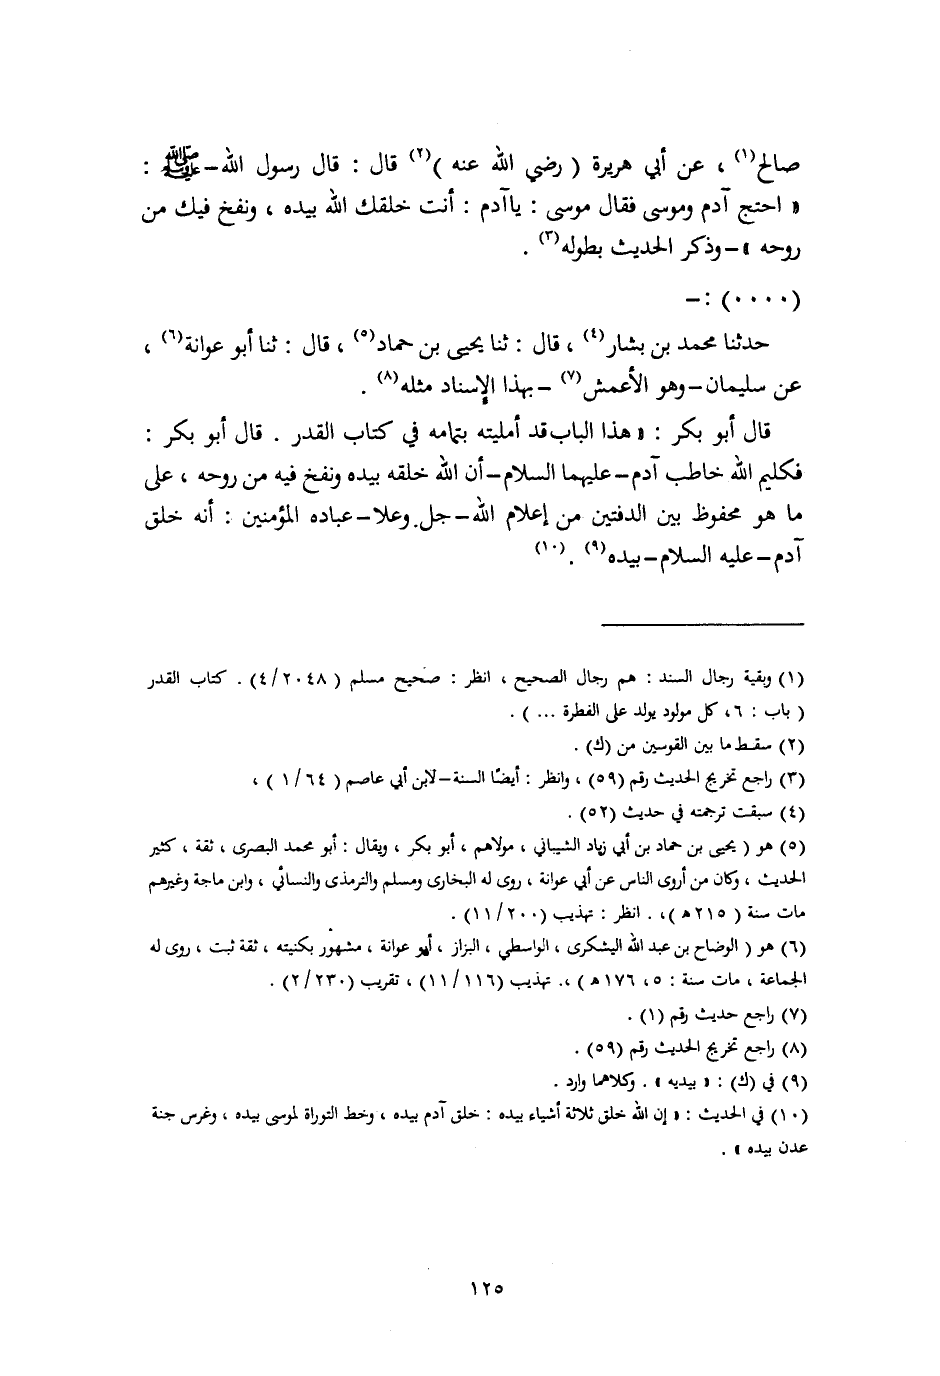 صالح(١) ، عن أبي هريرة ( رضي الله عنه )(٢) قال : قال رسول الله–ﷺ :
« احتج آدم وموسى فقال موسى : ياآدم : أنت خلقك الله بيده ، ونفخ فيك من
روحه »–وذكر الحديث بطوله(٣) .
(٠٠٠٠) :–
حدثنا محمد بن بشار(٤) ، قال : ثنا يحيى بن حماد(٥) ، قال : ثنا أبو عوانة(٦) ،
عن سليمان–وهو الأعمش(٧) –بهذا الإسناد مثله(٨) .
قال أبو بكر : « هذا الباب قد أمليته بتمامه في كتاب القدر . قال أبو بكر :
فكليم الله خاطب آدم–عليهما السلام–أن الله خلقه بيده ونفخ فيه من روحه ، على
ما هو محفوظ بين الدفتين من إعلام الله–جل وعلا–عباده المؤمنين : أنه خلق
آدم–عليه السلام–بيده(٩) .(١٠)
(١) وبقية رجال السند : هم رجال الصحيح ، انظر : صحيح مسلم ( ٤/٢٠٤٨) . كتاب القدر
( باب : ٦، كل مولود يولد على الفطرة ... ) .
(٢) سقط ما بين القوسين من (ك) .
(٣) راجع تخريج الحديث رقم (٥٩) ، وانظر : أيضًا السنة–لابن أبي عاصم ( ١/٦٤ ) ،
(٤) سبقت ترجمته في حديث (٥٢) .
(٥) هو ( يحيى بن حماد بن أبي زياد الشيباني ، مولاهم ، أبو بكر ، ويقال : أبو محمد البصرى ، ثقة ، كثير
الحديث ، وكان من أروى الناس عن أبي عوانة ، روى له البخارى ومسلم والترمذى والنسائي ، وابن ماجة وغيرهم
مات سنة ( ٢١٥ه )، . انظر : تهذيب (١١/٢٠٠) .
(٦) هو ( الوضاح بن عبد الله اليشكرى ، الواسطي ، البزاز ، أبو عوانة ، مشهور بكنيته ، ثقة ثبت ، روى له
الجماعة ، مات سنة : ٥، ١٧٦ه ) ،. تهذيب (١١/١١٦) ، تقريب (٢/٢٣٠) .
(٧) راجع حديث رقم (١) .
(٨) راجع تخريج الحديث رقم (٥٩) .
(٩) في (ك) : « بيديه » . وكلاهما وارد .
(١٠) في الحديث : « إن الله خلق ثلاثة أشياء بيده : خلق آدم بيده ، وخط التوراة لموسى بيده ، وغرس جنة
عدن بيده » .
١٢٥